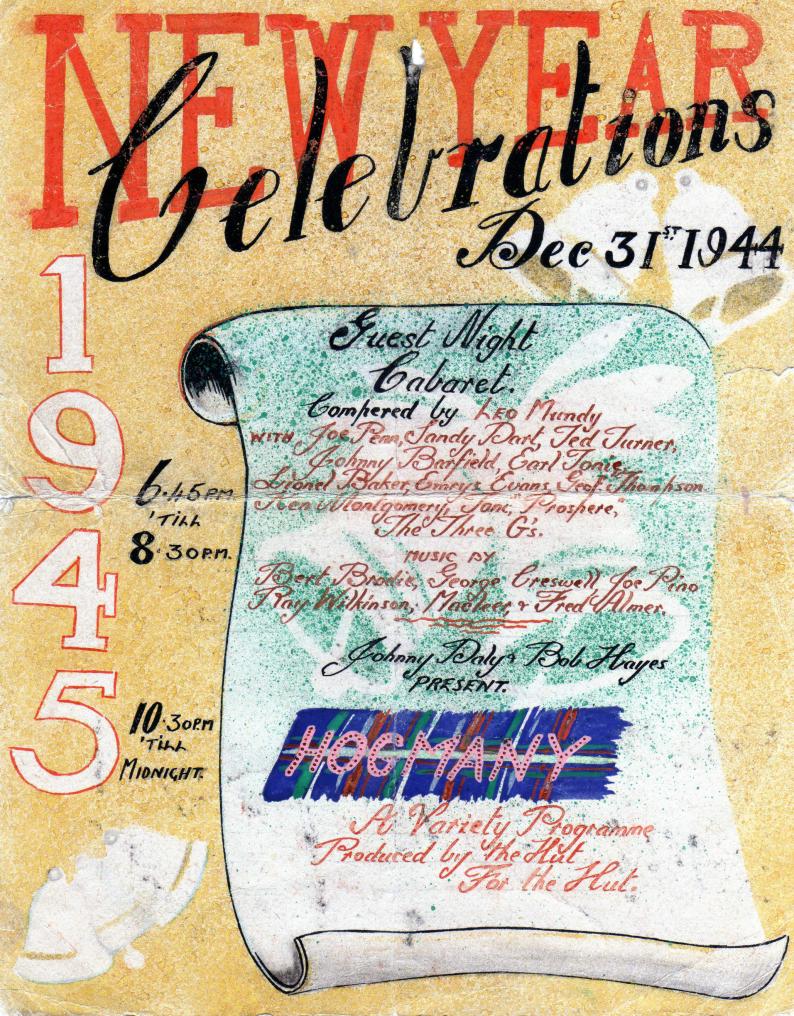 NEW YEAR
Celebrations
Dec 31ST 1944
1945
Guest Night
Cabaret.
Compered by Leo Mundy
with Joe Penn, Sandy Dart, Ted Turner,
Johnny Barfield, Earl Tonie,
Lionel Baker, Emrys Evans, Geof. Thompson
Ken Montgomery, Jane, "Prospere,"
The Three G's.
6.45PM
'TILL
8.30P.M.
MUSIC BY
Bert Brodie, George Creswell, Joe Pino
Ray Wilkinson, & Fred Almer.
Johnny Daly & Bob Hayes
PRESENT.
10.30PM
'TILL
MIDNIGHT.
HOGMANY
A Variety Programme
Produced by the Hut
For the Hut.